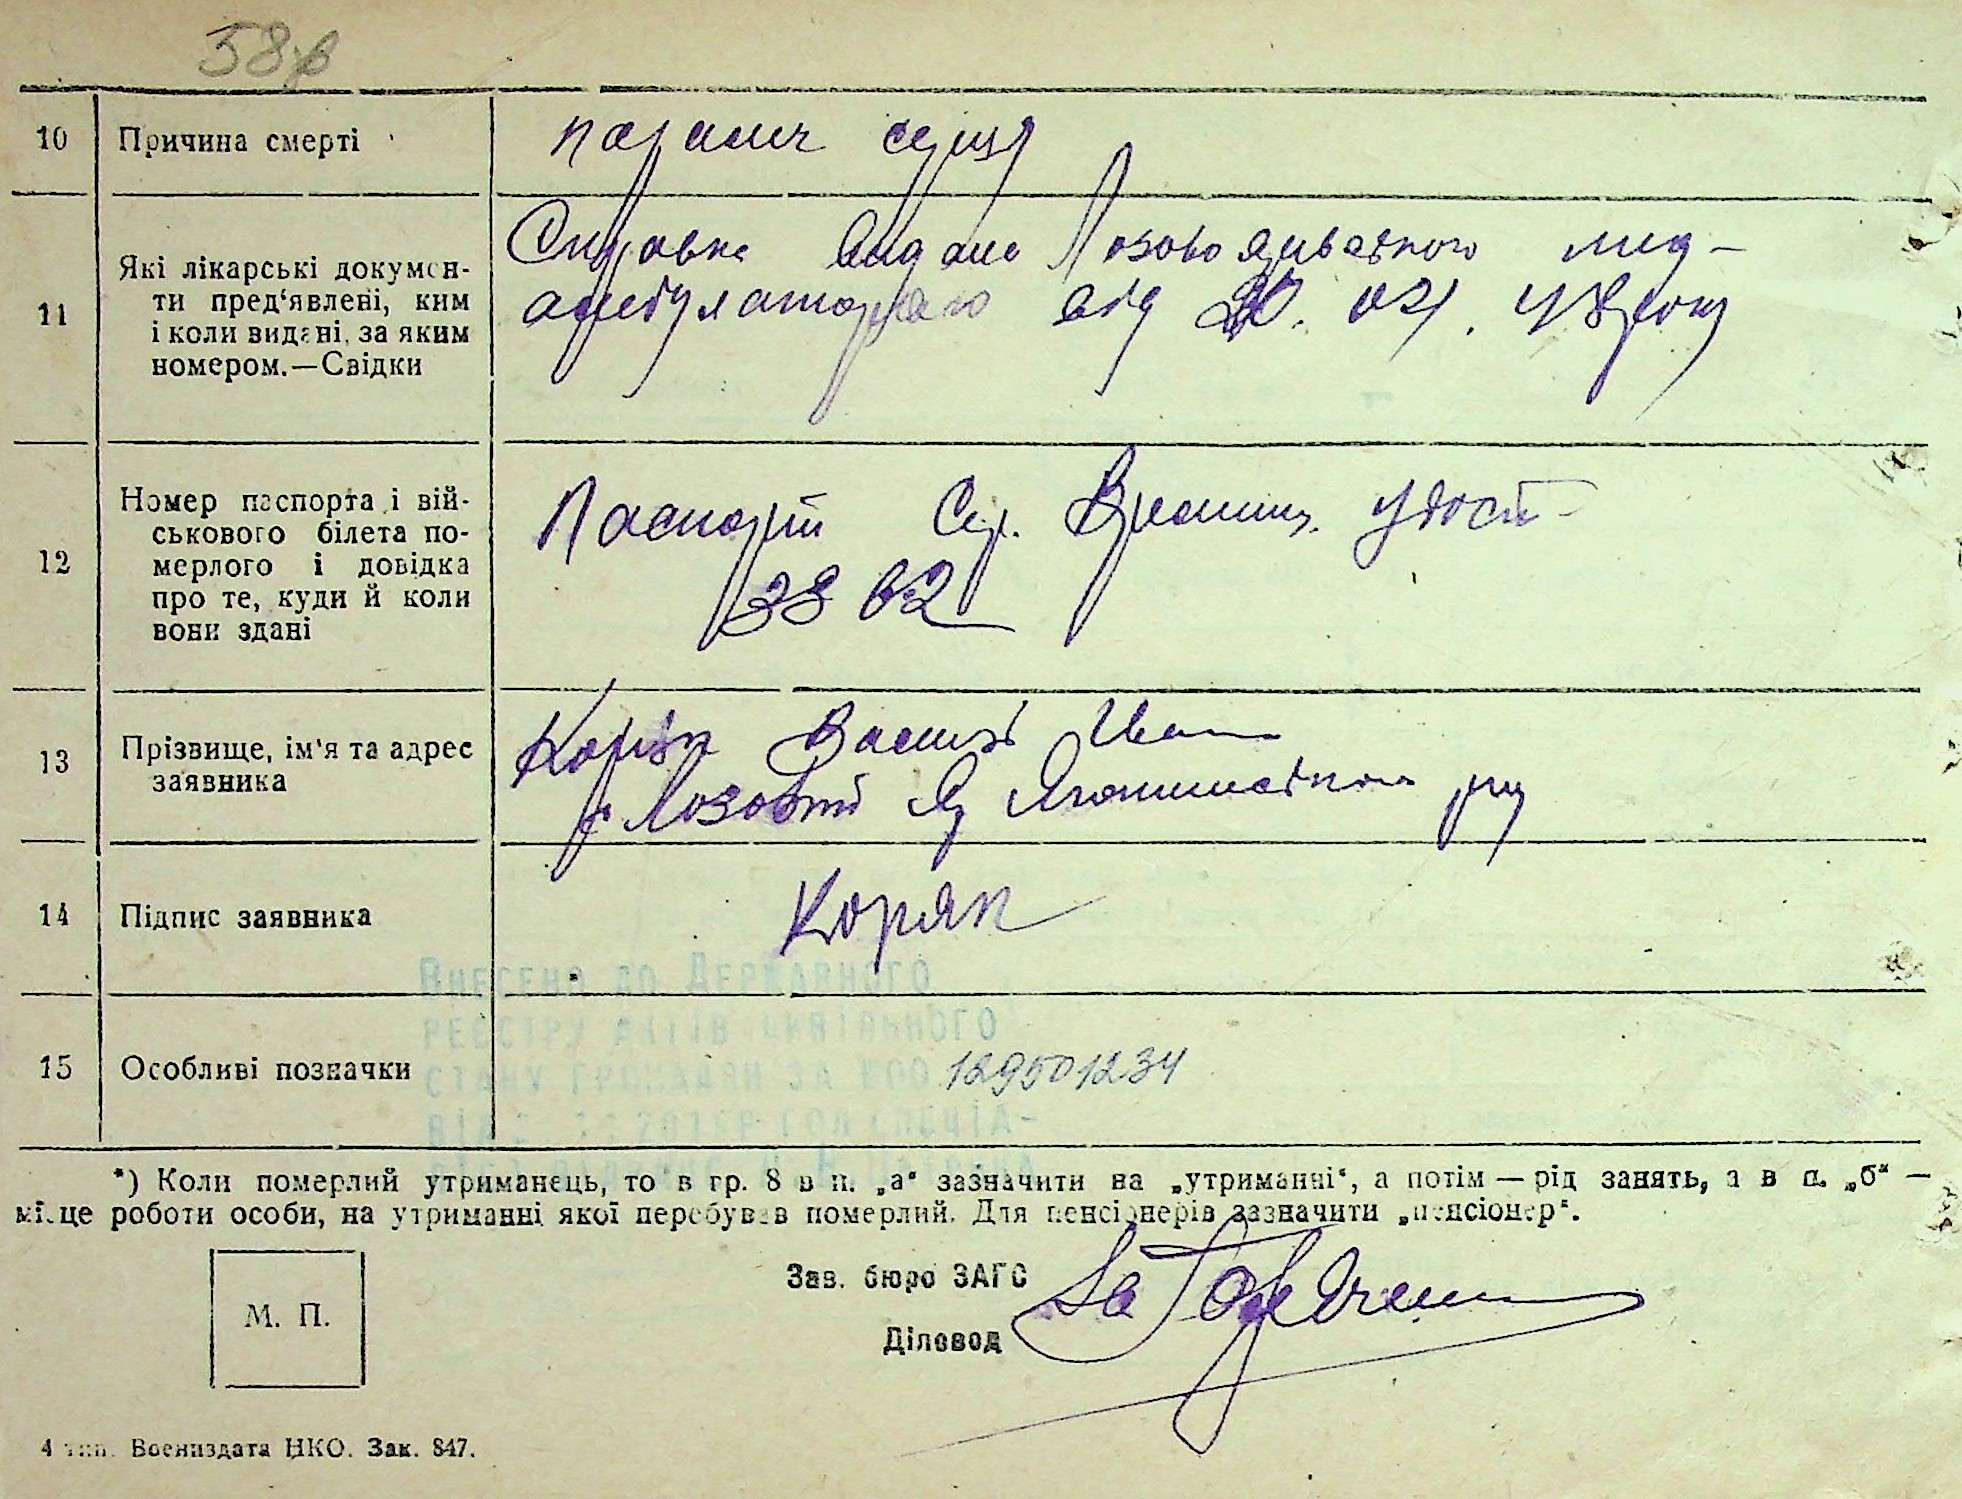 58
10 Причина смерті параліч серця
11 Які лікарські документи пред‘явлені, ким і коли видані, за яким номером.—Свідки
Справка видано Лозово Яруватского мед-
амбулаторією від 20. 04. 48 року
12 Номер паспорта і військового білета померлого і довідка про те, куди й коли вони здані
Паспорт Сер. Времен. удост
3862
13 Прізвище, ім'я та адрес заявника
Коряк Василь Иван
с Лозовий Яр Яготинського р-ну
14 Підпис заявника Коряк
15 Особливі позначки 129501234
Внесено до Державного
реєстру актів цивільного
стану громадян за №00
*) Коли померлий утриманець, то в гр. 8 в п. „а“ зазначити на „утриманні“, а потім — рід занять, а в п. „б“ —
місце роботи особи, на утриманні якої перебував померлий. Для пенсіонерів зазначити „пенсіонер“.
М. П.
Зав. бюро ЗАГС
Діловод
4 тип. Воениздата НКО. Зак. 847.